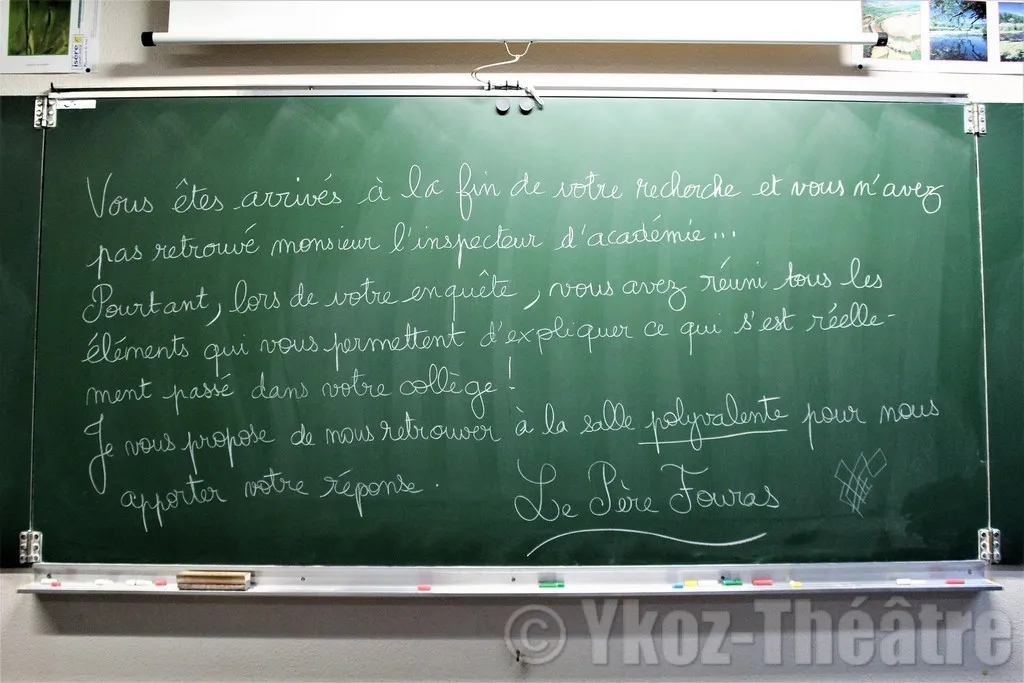 isère
Vous êtes arrivés à la fin de votre recherche et vous n'avez
pas retrouvé monsieur l'inspecteur d'académie...
Pourtant, lors de votre enquête, vous avez réuni tous les
éléments qui vous permettent d'expliquer ce qui s'est réelle-
ment passé dans votre collège !
Je vous propose de nous retrouver à la salle polyvalente pour nous
apporter votre réponse.
Le Père Fouras
© Ykoz-Théâtre